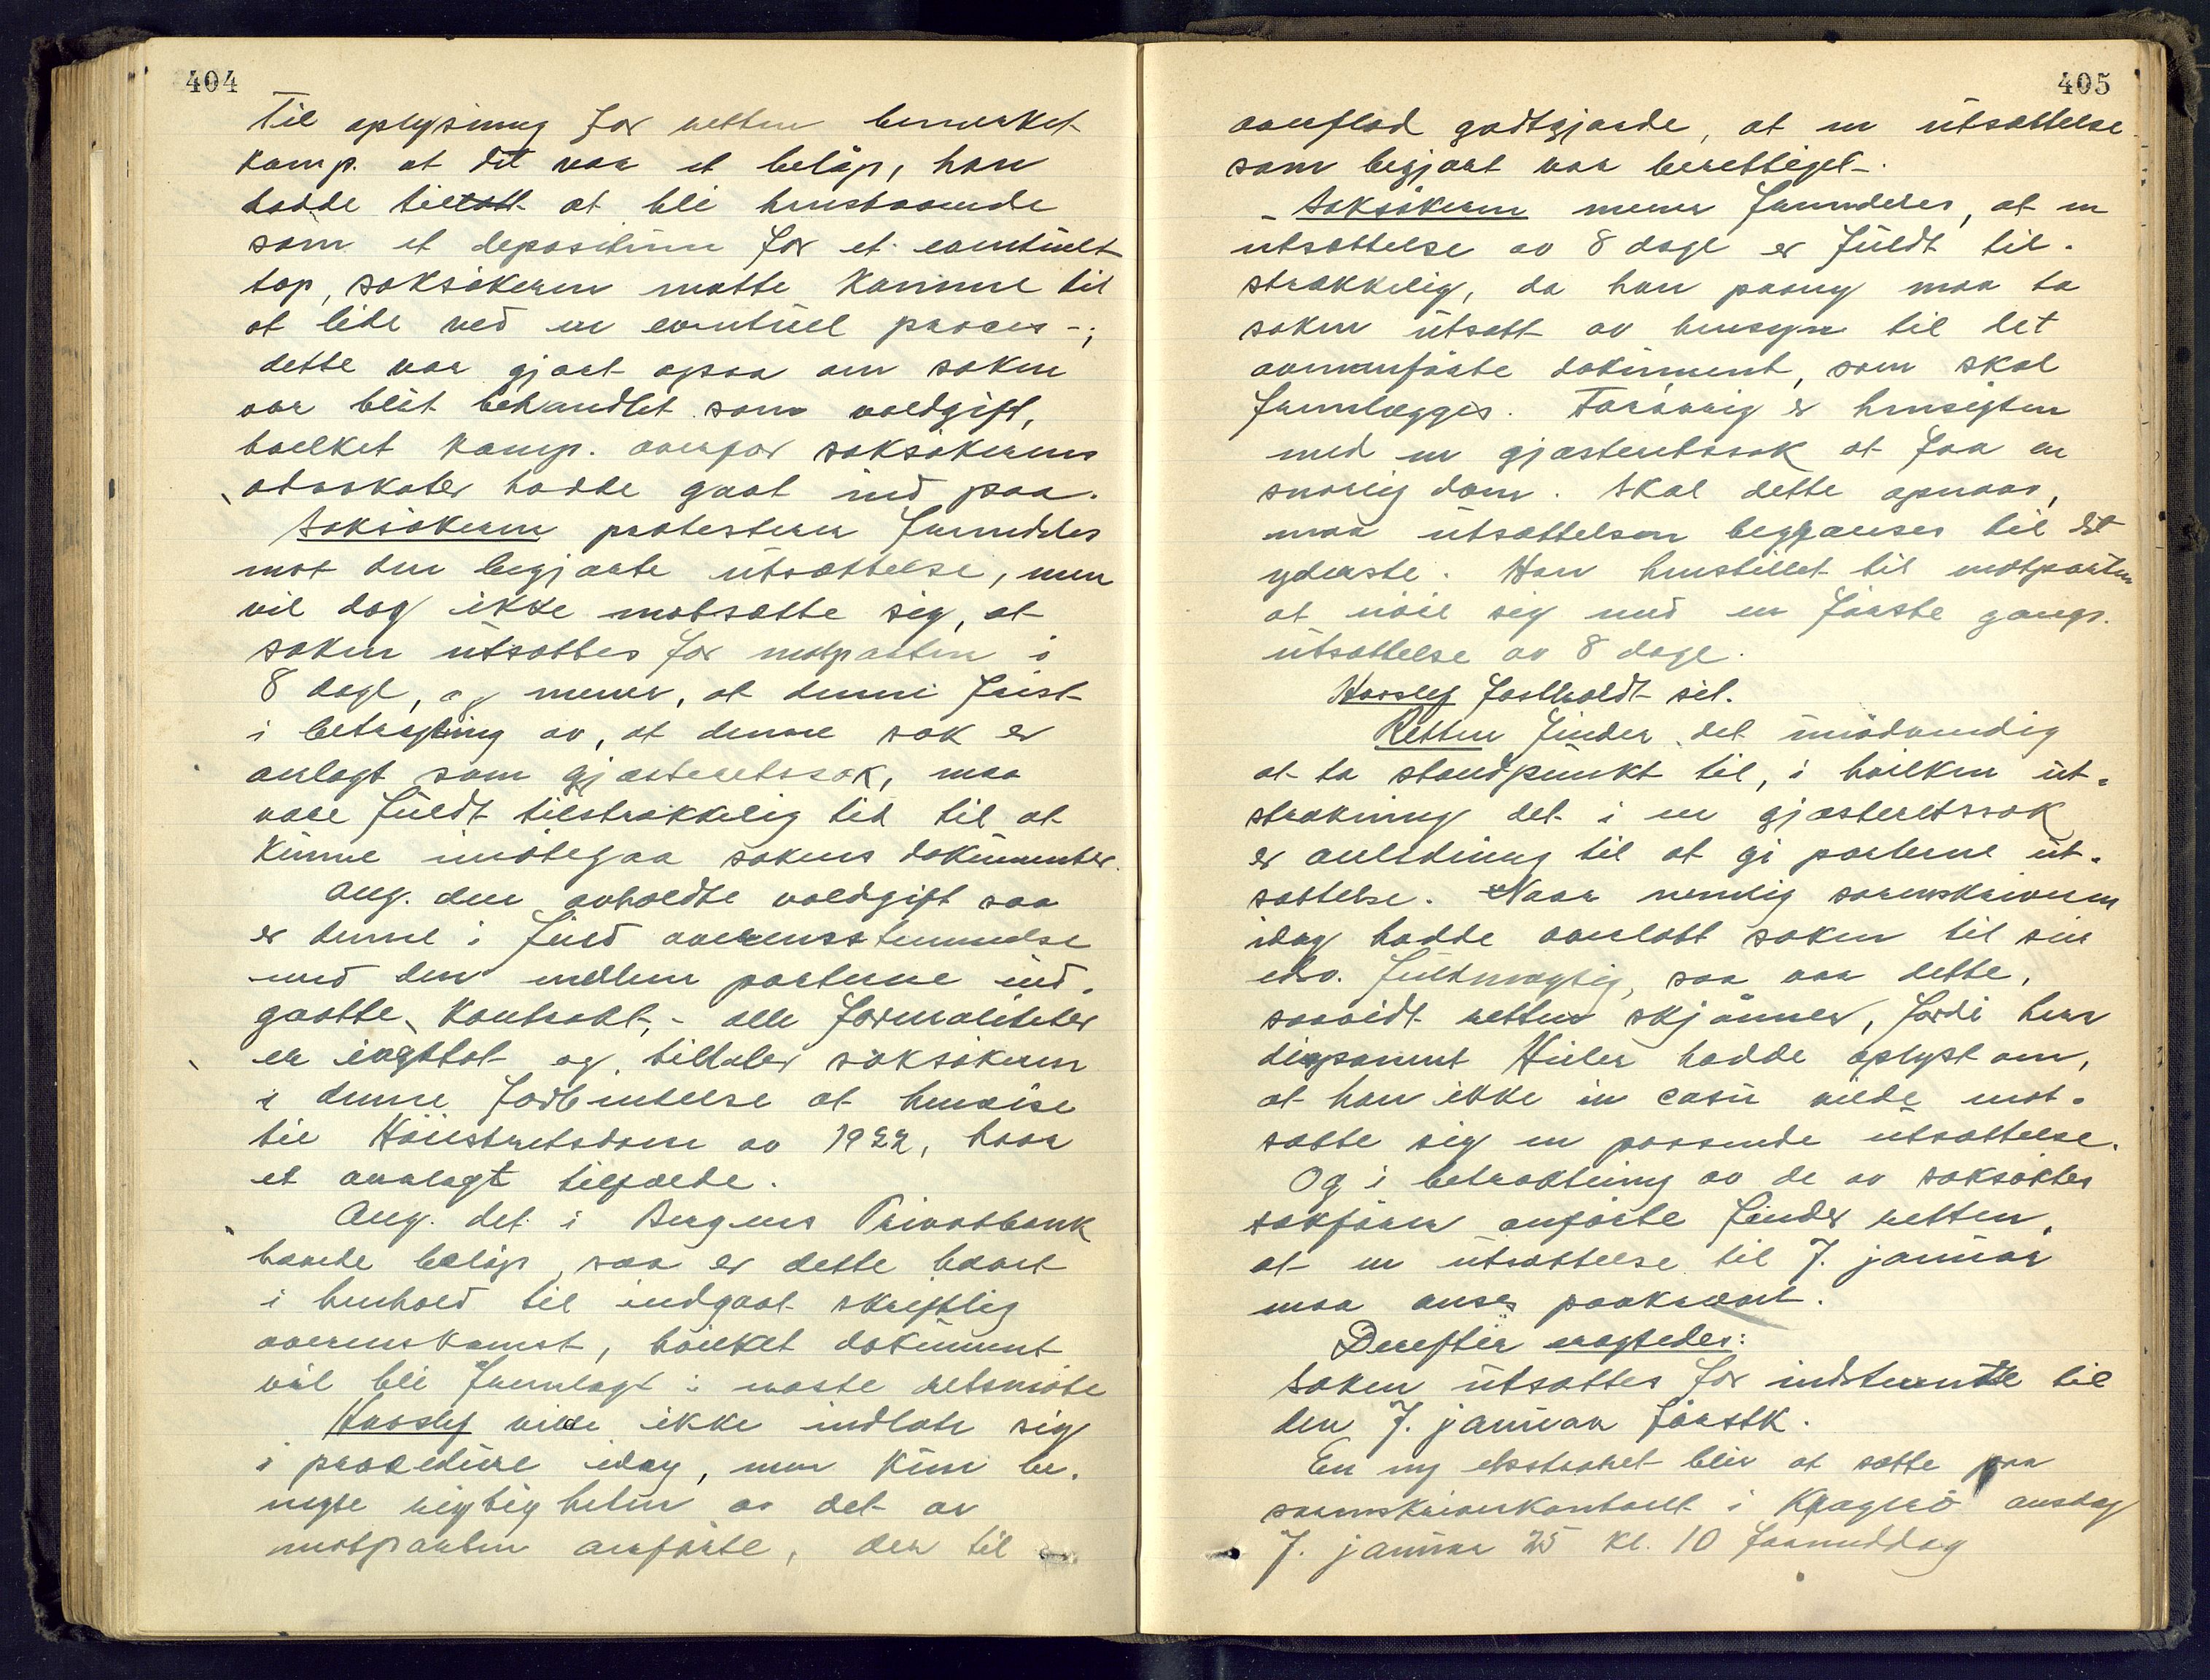 404
Til oplysning for retten bemerket
komp. at det var et beløp, han
hadde tillatt at bli henstaaende
som et depositum for et eventuelt
tap, saksøkeren maatte komme til
at lide ved en eventuel proces -;
dette var gjort ogsaa om saken
var blit behandlet som voldgift,
hvilket komp. overfor saksøkerens
advokater hadde gaat ind paa.
Saksøkeren protesterer fremdeles
mot den begjærte utsættelse, men
vil dog ikke motsætte sig, at
saken utsættes for motparten i
8 dage, og mener, at denne frist
i betragtning av, at denne sak er
anlagt som gjesteretssak, maa
være fuldt tilstrækkelig tid til at
kunne imøtegaa sakens dokumenter.
Ang. den avholdte voldgift saa
er denne i fuld overensstemmelse
med den mellem parterne ind-
gaatte kontrakt, - alle formaliteter
er iagttat og tillater saksøkeren
i denne forbindelse at henvise
til Høiesteretsdom av 1922, hvor
et analogt tilfælde.
Ang. det i Bergens Privatbank
hævede beløp, saa er dette hævet
i henhold til indgaat skriftlig
overenskomst, hvilket dokument
vil bli fremlagt i næste retsmøte
Haoslef vilde ikke indlate sig
i procedure idag, men kun be-
negte rigtigheten av det av
motparten anførte, der til
405
overflod godtgjorde, at en utsættelse
som begjært var berettiget -.
- Saksøkeren mener fremdeles, at en
utsættelse av 8 dage er fuldt til-
strækkelig, da han paany maa ta
saken utsatt av hensyn til det
ovenanførte dokument, som skal
fremlægges. Forøvrig er hensigten
med en gjesteretssak at faa en
snarlig dom. Skal dette opnaaes,
maa utsættelsen begrænses til det
yderste. Han henstillet til motparten
at nøie sig med en første gangs
utsættelse av 8 dage.
Haoslef fastholdt sit.
Retten finder det unødvendig
at ta standpunkt til, i hvilken ut-
strækning det i en gjesteretssak
er anledning til at gi parterne ut-
sættelse. Naar nemlig sorenskriveren
idag hadde overlatt saken til sin
edsv. fuldmægtig, saa var dette,
saavidt retten skjønner, fordi herr
disponent Hüler hadde oplyst om,
at han ikke in casu vilde mot-
sætte sig en passende utsættelse.
Og i betraktning av de av saksøktes
sakfører anførte finder retten,
at en utsættelse til 7. januar
maa anses paakrævet.
Derefter eragtedes:
Saken utsættes for indstevnte til
den 7. januar førstk.
En ny ekstraret blir at sætte paa
sorenskriverkontoret i Kragerø onsdag
7. januar 25 kl. 10 formiddag